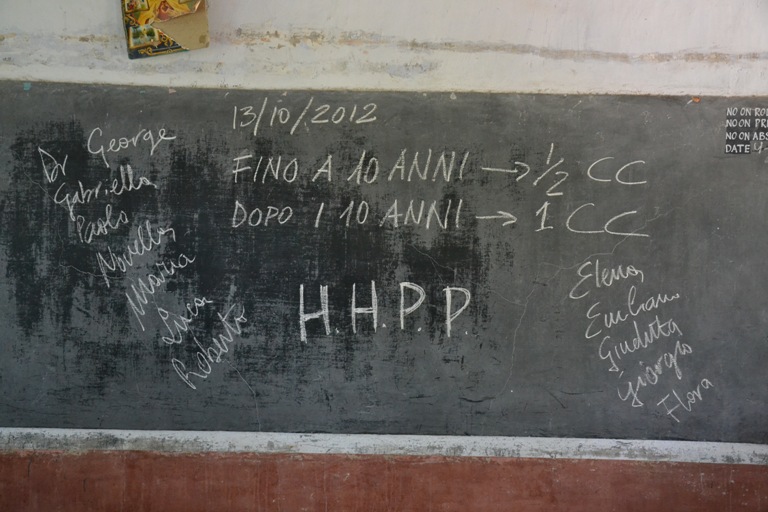 13/10/2012
FINO A 10 ANNI → 1/2 CC
DOPO I 10 ANNI → 1 CC
H.H.P.P.
Dr George
Gabriella
Paolo
Novella
Marina
Luca
Roberto
Elena
Emiliano
Giuditta
Giorgio
Flora
NO ON
NO ON
NO ON
DATE